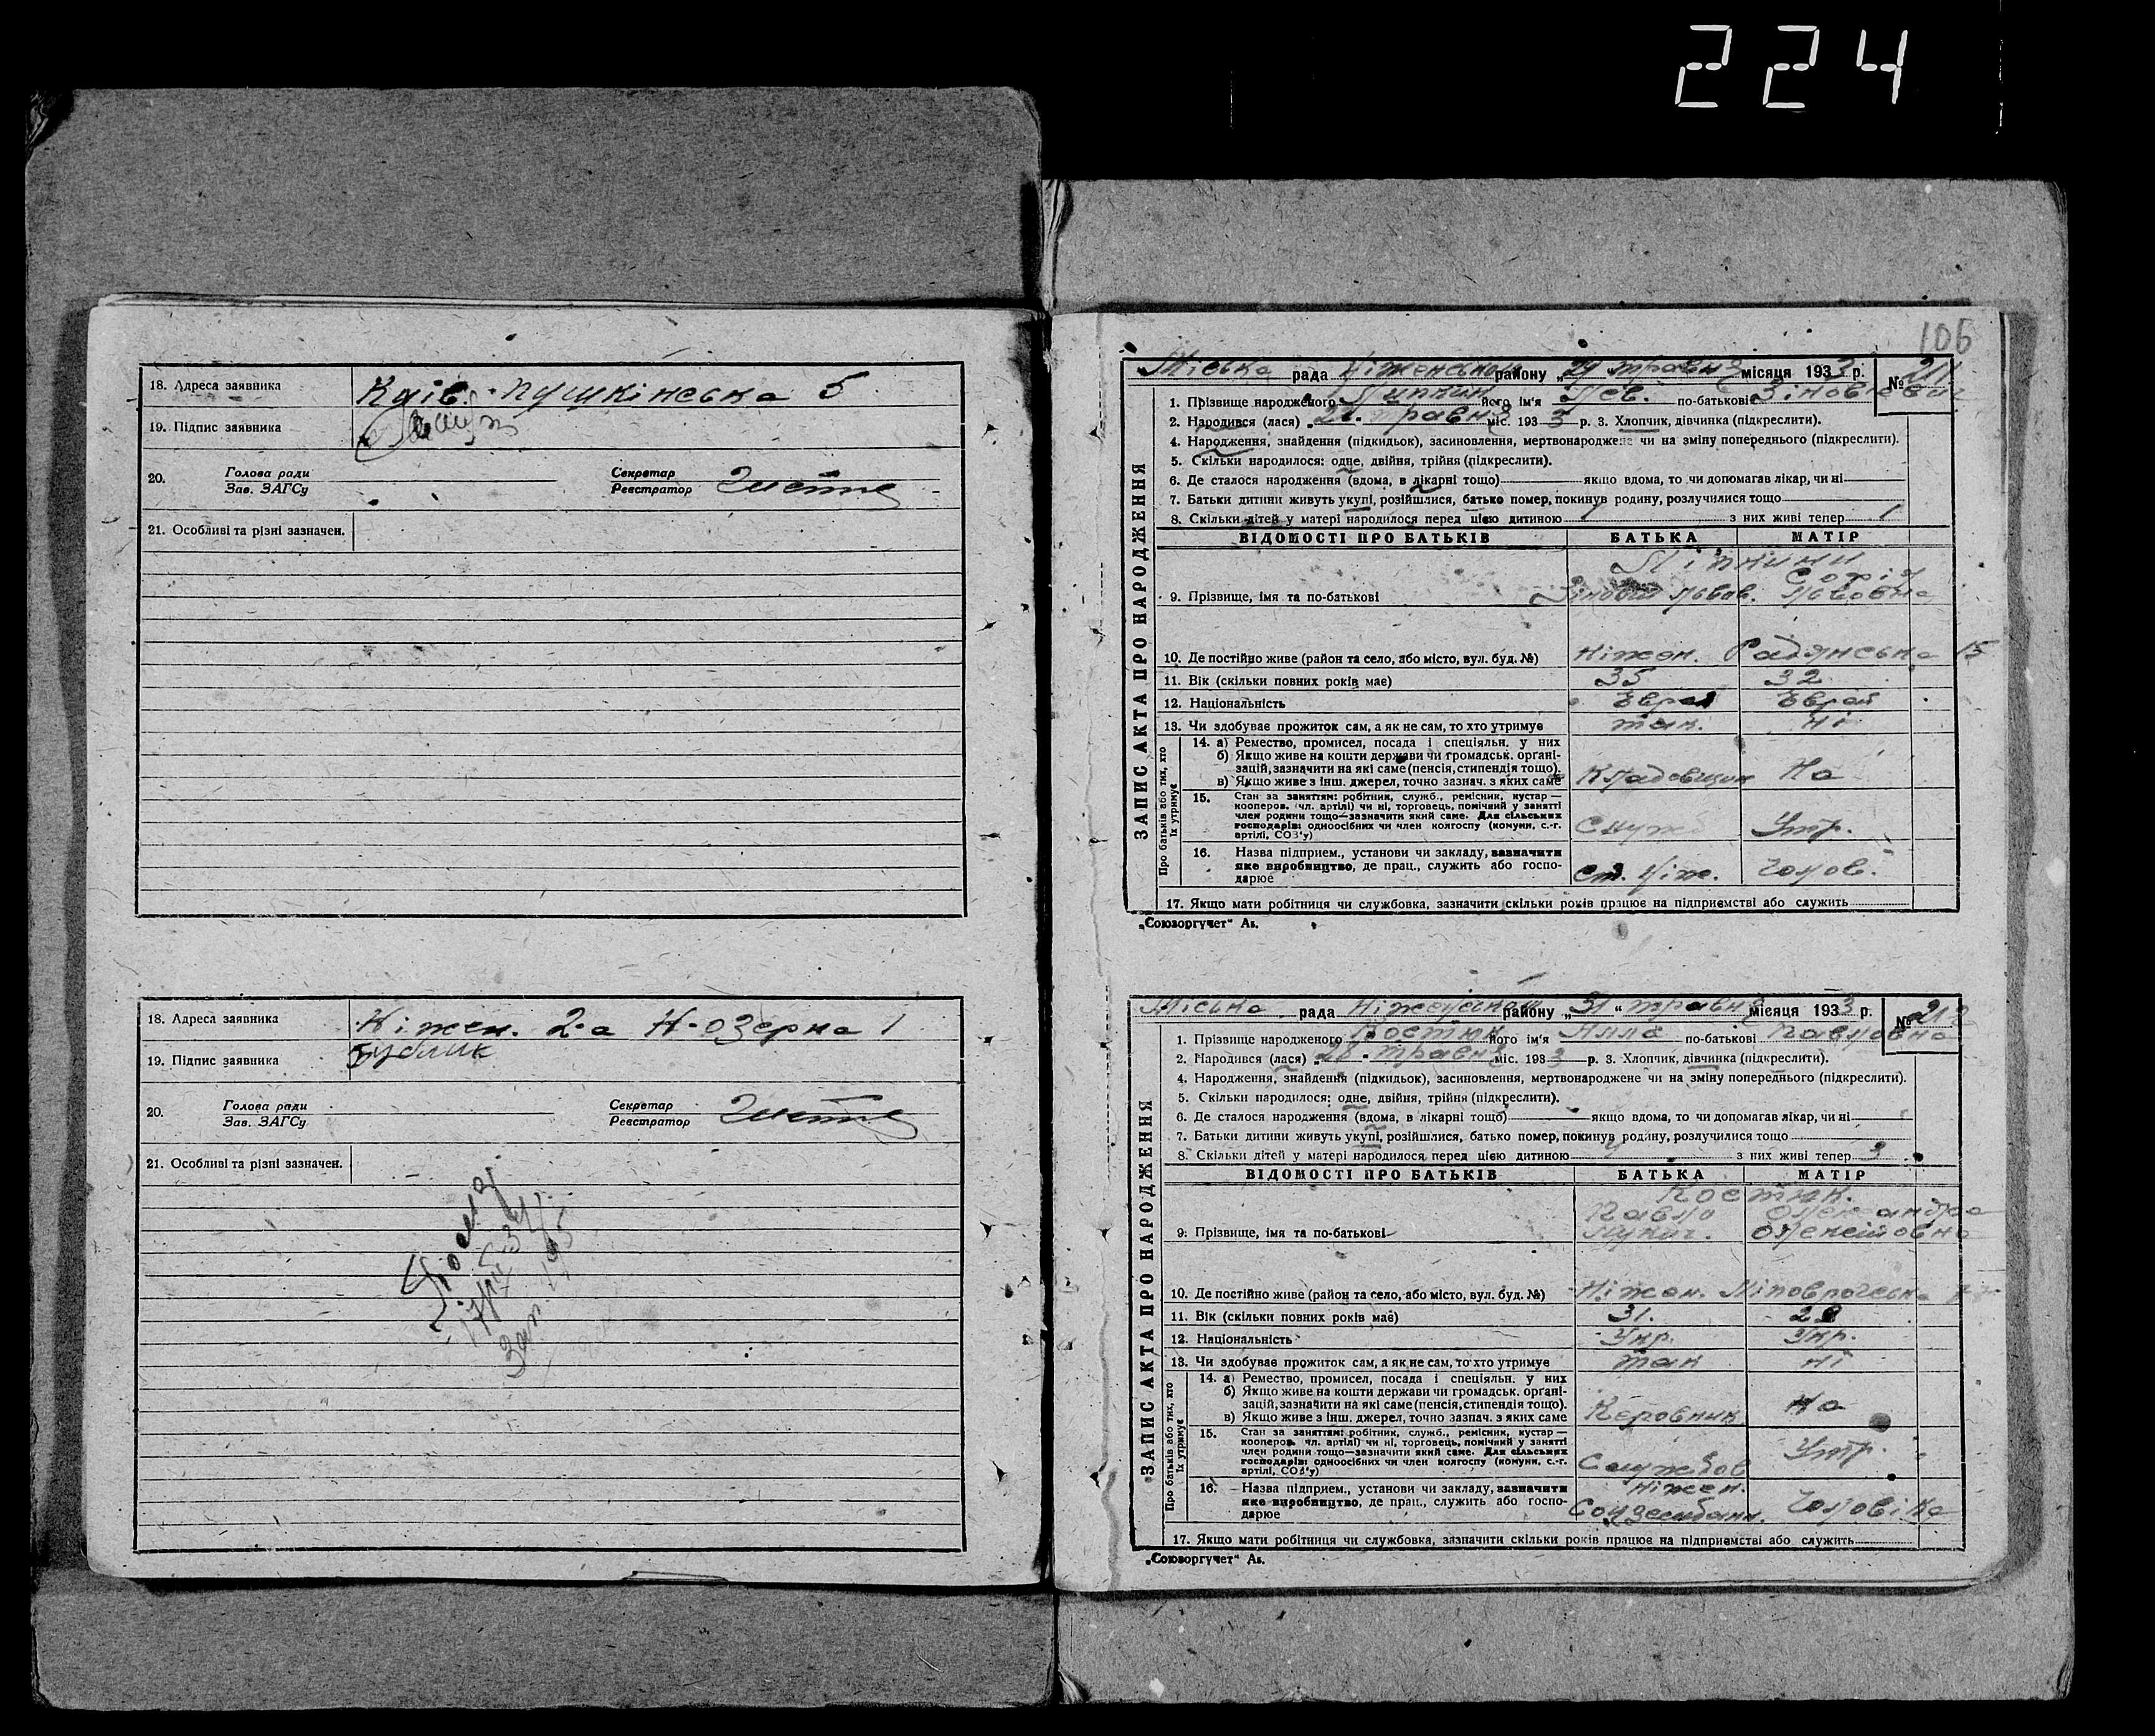 224
18. Адреса заявника Київ. Пушкінська 5
19. Підпис заявника
20. Голова ради Зав. ЗАГСу Секретар Реєстратор
21. Особливі та різні зазначен.
18. Адреса заявника Ніжен. 2-а Н-озерна 1
19. Підпис заявника Бублик
20. Голова ради Зав. ЗАГСу Секретар Реєстратор
21. Особливі та різні зазначен.
106
ЗАПИС АКТА ПРО НАРОДЖЕННЯ
Міська рада Ніженськ району „29 травня місяця 1933 р. № 211
1. Прізвище народженого його ім'я Лев. по-батькові Зіновієвіч
2. Народився (лася) „ травня міс. 1933 р. 3. Хлопчик, дівчинка (підкреслити).
4. Народження, знайдення (підкидьок), засиновлення, мертвонароджене чи на зміну попереднього (підкреслити).
5. Скільки народилося: одне, двійня, трійня (підкреслити).
6. Де сталося народження (вдома, в лікарні тощо) якщо вдома, то чи допомагав лікар, чи ні
7. Батьки дитини живуть укупі, розійшлися, батько помер, покинув родину, розлучилися тощо
8. Скільки дітей у матері народилося перед цією дитиною 1 з них живі тепер 1
ВІДОМОСТІ ПРО БАТЬКІВ БАТЬКА МАТІР
Софія
9. Прізвище, імя та по-батькові Львов. Львовна
10. Де постійно живе (район та село, або місто, вул. буд. №) Ніжен. Радянська 15
11. Вік (скільки повних років має) 35 32
12. Національність Еврей Еврей
13. Чи здобуває прожиток сам, а як не сам, то хто утримує так. ні
Про батьків або тих, хто їх утримує
14. а) Ремество, промисел, посада і спеціяльн. у них
б) Якщо живе на кошти держави чи громадськ. органі-
зацій, зазначити на які саме (пенсія, стипендія тощо).
в) Якщо живе з інш. джерел, точно зазнач. з яких саме Кладовщик На
15. Стан за заняттям: робітник, служб., ремісник, кустар —
кооперов. (чл. артілі) чи ні, торговець, помічний у занятті
член родини тощо—зазначити який саме. Для сільських
господарів: одноосібних чи член колгоспу (комуни, с.-г.
артілі, СОЗ'у) Служ Утр.
16. Назва підприєм., установи чи закладу, зазначити
яке виробництво, де прац., служить або госпо-
дарює ст. Ніж. Чолов.
17. Якщо мати робітниця чи службовка, зазначити скільки років працює на підприємстві або служить
„Союзоргучет“ Ав.
ЗАПИС АКТА ПРО НАРОДЖЕННЯ
Міська рада Ніженськ району „31“ травня місяця 1933 р. № 212
1. Прізвище народженого Костюк його ім'я Алла по-батькові Павловна
2. Народився (лася) „28. травня міс. 1933 р. 3. Хлопчик, дівчинка (підкреслити).
4. Народження, знайдення (підкидьок), засиновлення, мертвонароджене чи на зміну попереднього (підкреслити).
5. Скільки народилося: одне, двійня, трійня (підкреслити).
6. Де сталося народження (вдома, в лікарні тощо) якщо вдома, то чи допомагав лікар, чи ні
7. Батьки дитини живуть укупі, розійшлися, батько помер, покинув родину, розлучилися тощо
8. Скільки дітей у матері народилося перед цією дитиною з них живі тепер 3
ВІДОМОСТІ ПРО БАТЬКІВ БАТЬКА МАТІР
Костюк.
Павло Олександра
9. Прізвище, імя та по-батькові Олексіївна
10. Де постійно живе (район та село, або місто, вул. буд. №) Ніжен.
11. Вік (скільки повних років має) 31. 28
12. Національність Укр. Укр.
13. Чи здобуває прожиток сам, а як не сам, то хто утримує так ні
Про батьків або тих, хто їх утримує
14. а) Ремество, промисел, посада і спеціяльн. у них
б) Якщо живе на кошти держави чи громадськ. органі-
зацій, зазначити на які саме (пенсія, стипендія тощо).
в) Якщо живе з інш. джерел, точно зазнач. з яких саме Керовник На
15. Стан за заняттям: робітник, служб., ремісник, кустар —
кооперов. чл. артілі) чи ні, торговець, помічний у занятті
член родини тощо—зазначити який саме. Для сільських
господарів: одноосібних чи член колгоспу (комуни, с.-г.
артілі, СОЗ'у) Службов Утр.
16. Назва підприєм., установи чи закладу, зазначити
яке виробництво, де прац., служить або госпо-
дарює Ніжен. Чоловіка
17. Якщо мати робітниця чи службовка, зазначити скільки років працює на підприємстві або служить
„Союзоргучет“ Ав.